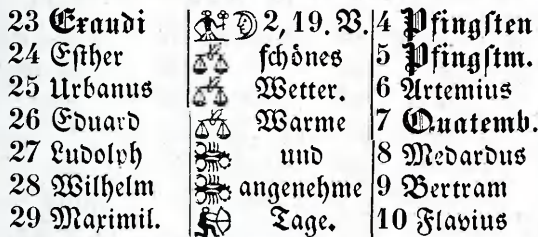 23 Exaudi 2, 19. V. 4 Pfingsten
24 Esther schönes 5 Pfingstm.
25 Urbanus Wetter. 6 Artemius
26 Eduard Warme 7 Quatemb.
27 Ludolph und 8 Medardus
28 Wilhelm angenehme 9 Bertram
29 Maximil. Tage. 10 Flavius